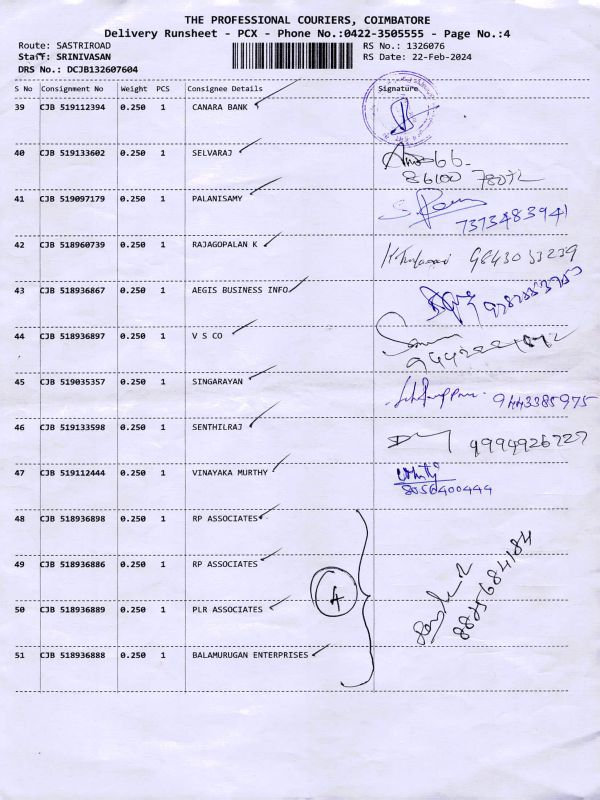 THE PROFESSIONAL COURIERS, COIMBATORE
Delivery Runsheet - PCX - Phone No.:0422-3505555 - Page No.:4
Route: SASTRIROAD RS No.: 1326076
Staff: SRINIVASAN RS Date: 22-Feb-2024
DRS No.: DCJB132607604
S No Consignment No Weight PCS Consignee Details Signature
39 CJB 519112394 0.250 1 CANARA BANK
40 CJB 519133602 0.250 1 SELVARAJ
41 CJB 519097179 0.250 1 PALANISAMY
7373483941
42 CJB 518960739 0.250 1 RAJAGOPALAN K
43 CJB 518936867 0.250 1 AEGIS BUSINESS INFO
44 CJB 518936897 0.250 1 V S CO
45 CJB 519035357 0.250 1 SINGARAYAN 9443385975
46 CJB 519133598 0.250 1 SENTHILRAJ 9994926727
47 CJB 519112444 0.250 1 VINAYAKA MURTHY
8056400444
48 CJB 518936898 0.250 1 RP ASSOCIATES
49 CJB 518936886 0.250 1 RP ASSOCIATES
4
8825684184
50 CJB 518936889 0.250 1 PLR ASSOCIATES
51 CJB 518936888 0.250 1 BALAMURUGAN ENTERPRISES